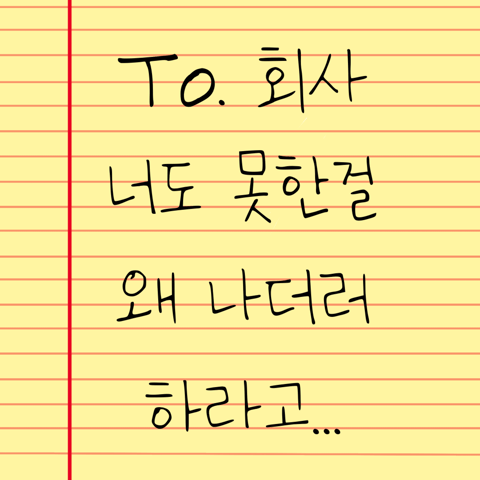 To. 회사
너도 못한걸
왜 나더러
하라고...